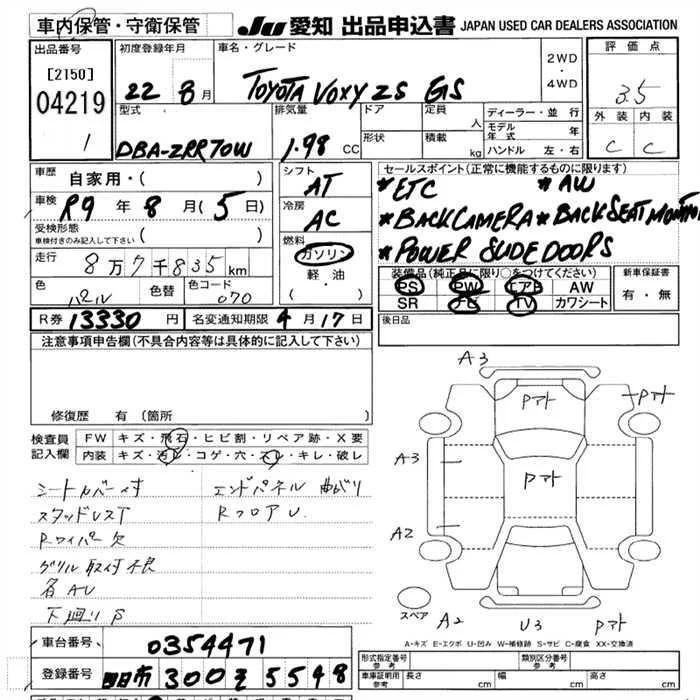 車内保管・守衛保管
JU 愛知 出品申込書 JAPAN USED CAR DEALERS ASSOCIATION
出品番号
[2150]
04219
1
初度登録年月
22 8月
車名・グレード
TOYOTA VOXY ZS GS
2WD
・
4WD
評価点
3.5
外装 内装
C C
型式
DBA-ZRR70W
排気量
1.98 CC
ドア
形状
定員 人
積載 kg
ディーラー・並行
モデル年式 年
ハンドル 左・右
車歴 自家用・( )
車検 R9年8月(5日)
受検形態
車検付きのみ記入して下さい ( )
走行 8万7千835km
色 パール 色替 色コード 070
シフト
AT
冷房
AC
燃料
ガソリン
・
軽油
( )
セールスポイント(正常に機能するものに限ります)
*ETC *AW
*BACK CAMERA *BACK SEAT MONITO
*POWER SLIDE DOORS
装備品(純正品に限り○をつけてください)
PS PW エアB AW
SR ナビ TV カワシート
新車保証書
有・無
R券 13330円 名変通知期限 4月17日
後日品
注意事項申告欄(不具合内容等は具体的に記入して下さい)
修復歴 有(箇所 )
検査員記入欄
FW キズ・飛石・ヒビ割・リペア跡・X要
内装 キズ・汚レ・コゲ・穴・スレ・キレ・破レ
シートカバー付 エンドパネル曲がり
スタッドレスT RフロアU.
Rワイパー欠
グリル取付不良
各AU
下廻りS
A3
Pマト Pマト
A3
Pマト
A2
スペア
A2 U3 Pマト
A-キズ E-エクボ U-凹み W-補修跡 S-サビ C-腐食 XX-交換済
車台番号 0354471
登録番号 四日市 300 そ 5548
形式指定番号 参考
類別区分番号 参考
車庫証明用 参考 長さ cm 幅 cm 高さ cm